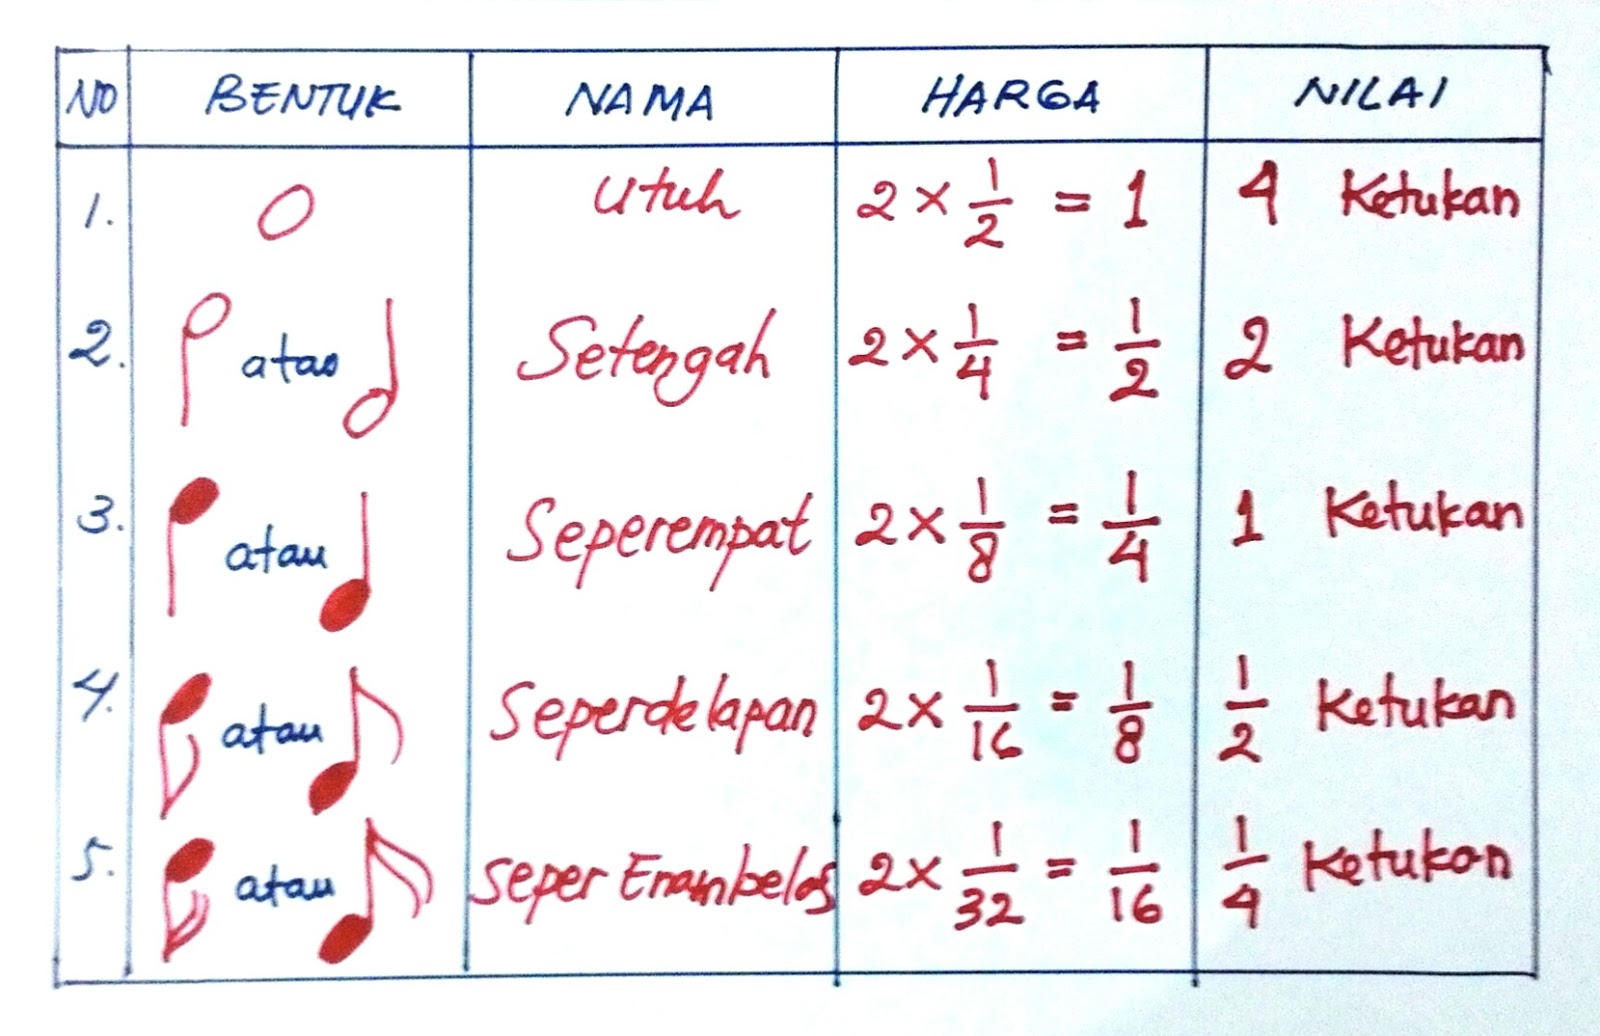 NO BENTUK NAMA HARGA NILAI
1. Utuh 2 × 1/2 = 1 4 Ketukan
2. atau Setengah 2 × 1/4 = 1/2 2 Ketukan
3. atau Seperempat 2 × 1/8 = 1/4 1 Ketukan
4. atau Seperdelapan 2 × 1/16 = 1/8 1/2 Ketukan
5. atau Seper Enambelas 2 × 1/32 = 1/16 1/4 Ketukan